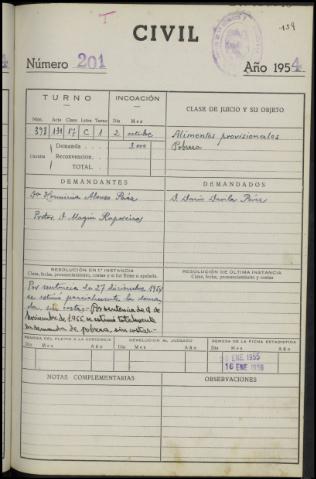 T
-159
CIVIL
Número 201
Año 1954
TURNO
INCOACIÓN
CLASE DE JUICIO Y SU OBJETO
Núm. Acto Clase Letra Turno Día Mes
393 131 17 C 1 2 octubre
Demanda 3.000
Cuantía Reconvención
TOTAL
Alimentos provisionales
Pobreza
DEMANDANTES
DEMANDADOS
Dª Herminia Alonso Páez
Prtdor. D. Magín Rapoeiras
D. Darío Davila Páez
RESOLUCIÓN EN 1ª INSTANCIA
Clase, fecha, pronunciamiento, costas y si fué firme o apelada.
RESOLUCIÓN DE ÚLTIMA INSTANCIA
Clase, fecha, pronunciamiento y costas
Por sentencia de 27 diciembre 1954
se estimó parcialmente la deman-
da sin costas.- Por sentencia de 9 de
Noviembre de 1955 se estimó totalmente
la demanda de pobreza, sin costas-
REMESA DEL PLEITO A LA AUDIENCIA
DEVOLUCIÓN AL JUZGADO
REMESA DE LA FICHA ESTADÍSTICA
Día Mes Año
Día Mes Año
Día Mes Año
ENE. 1955
10 ENE 1956
NOTAS COMPLEMENTARIAS
OBSERVACIONES